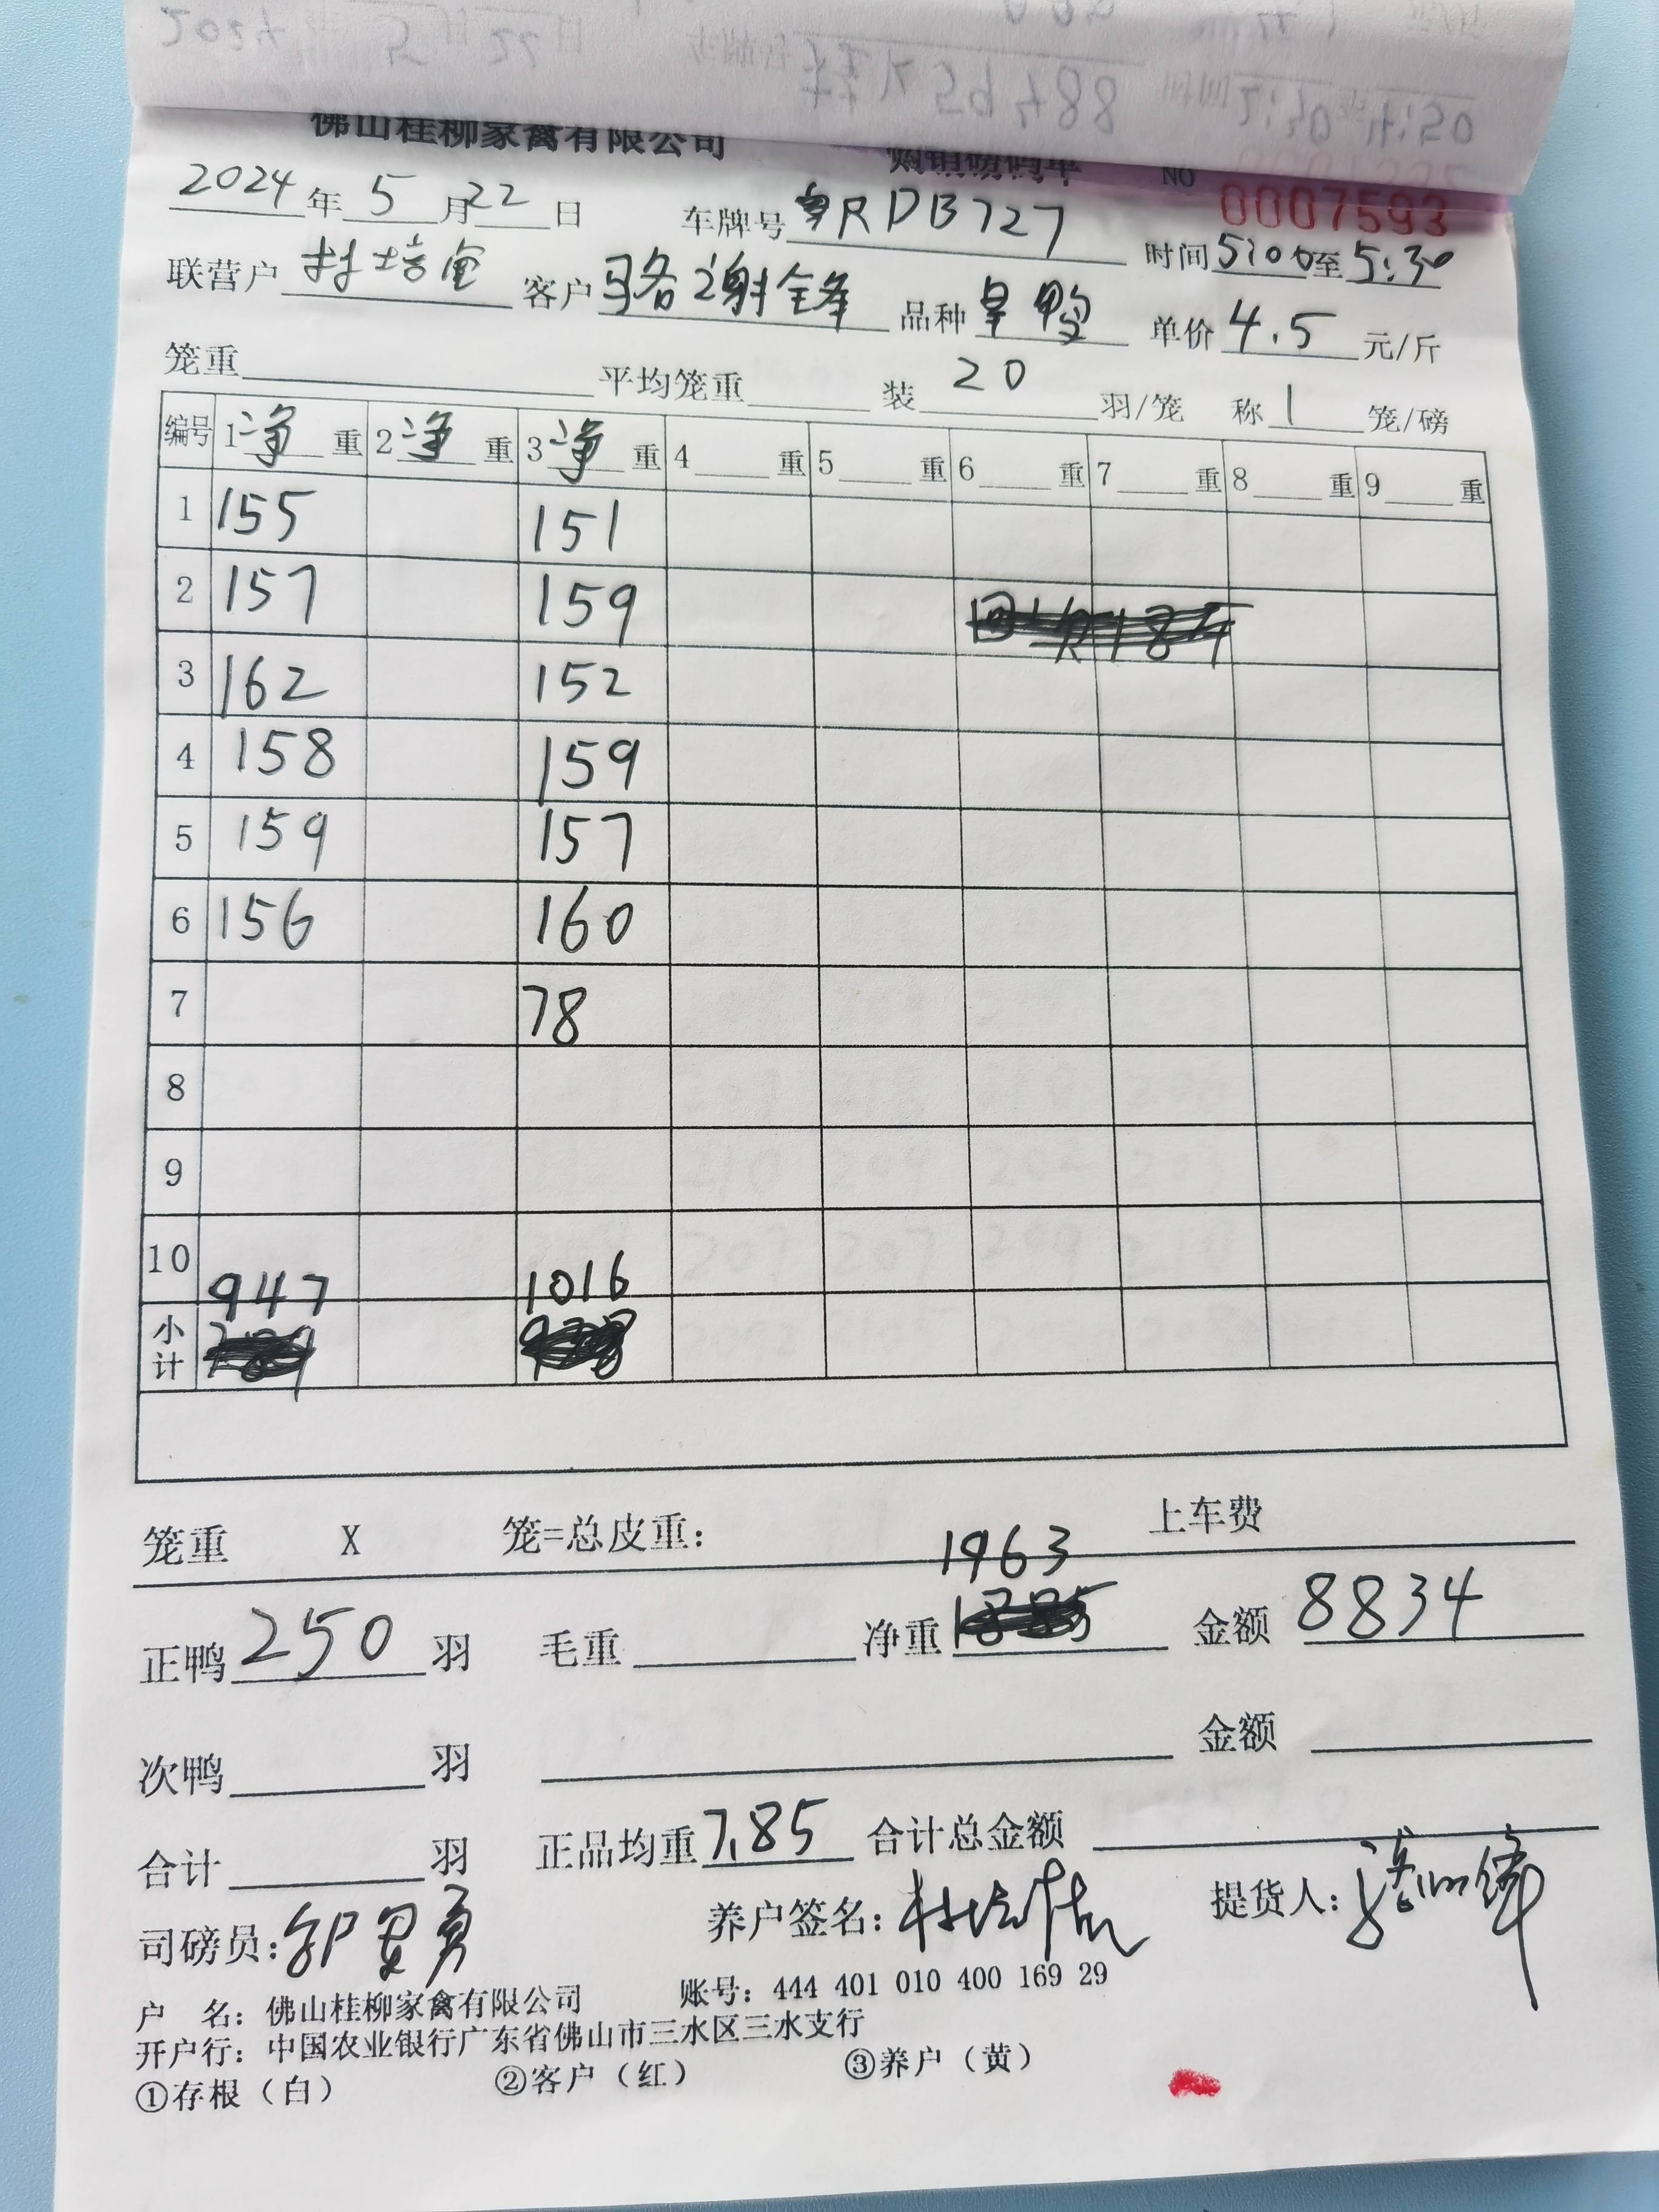 佛山桂柳家禽有限公司 购销磅码单
2024年5月22日 车牌号 粤RDB727 NO 0007593
时间5:00至5:30
联营户 客户 骆谢锋 品种 旱鸭 单价4.5元/斤
笼重 平均笼重 装20羽/笼 称1笼/磅
编号 1净重 2净重 3净重 4重 5重 6重 7重 8重 9重
1 155 151
2 157 159
3 162 152
4 158 159
5 159 157
6 156 160
7 78
8
9
10
947 1016
小计
笼重 X 笼=总皮重: 上车费
1963
正鸭250羽 毛重 净重 金额8834
次鸭 羽 金额
合计 羽 正品均重7.85 合计总金额
司磅员: 养户签名: 提货人:
户 名: 佛山桂柳家禽有限公司 账号: 444 401 010 400 169 29
开户行: 中国农业银行广东省佛山市三水区三水支行
①存根(白) ②客户(红) ③养户(黄)